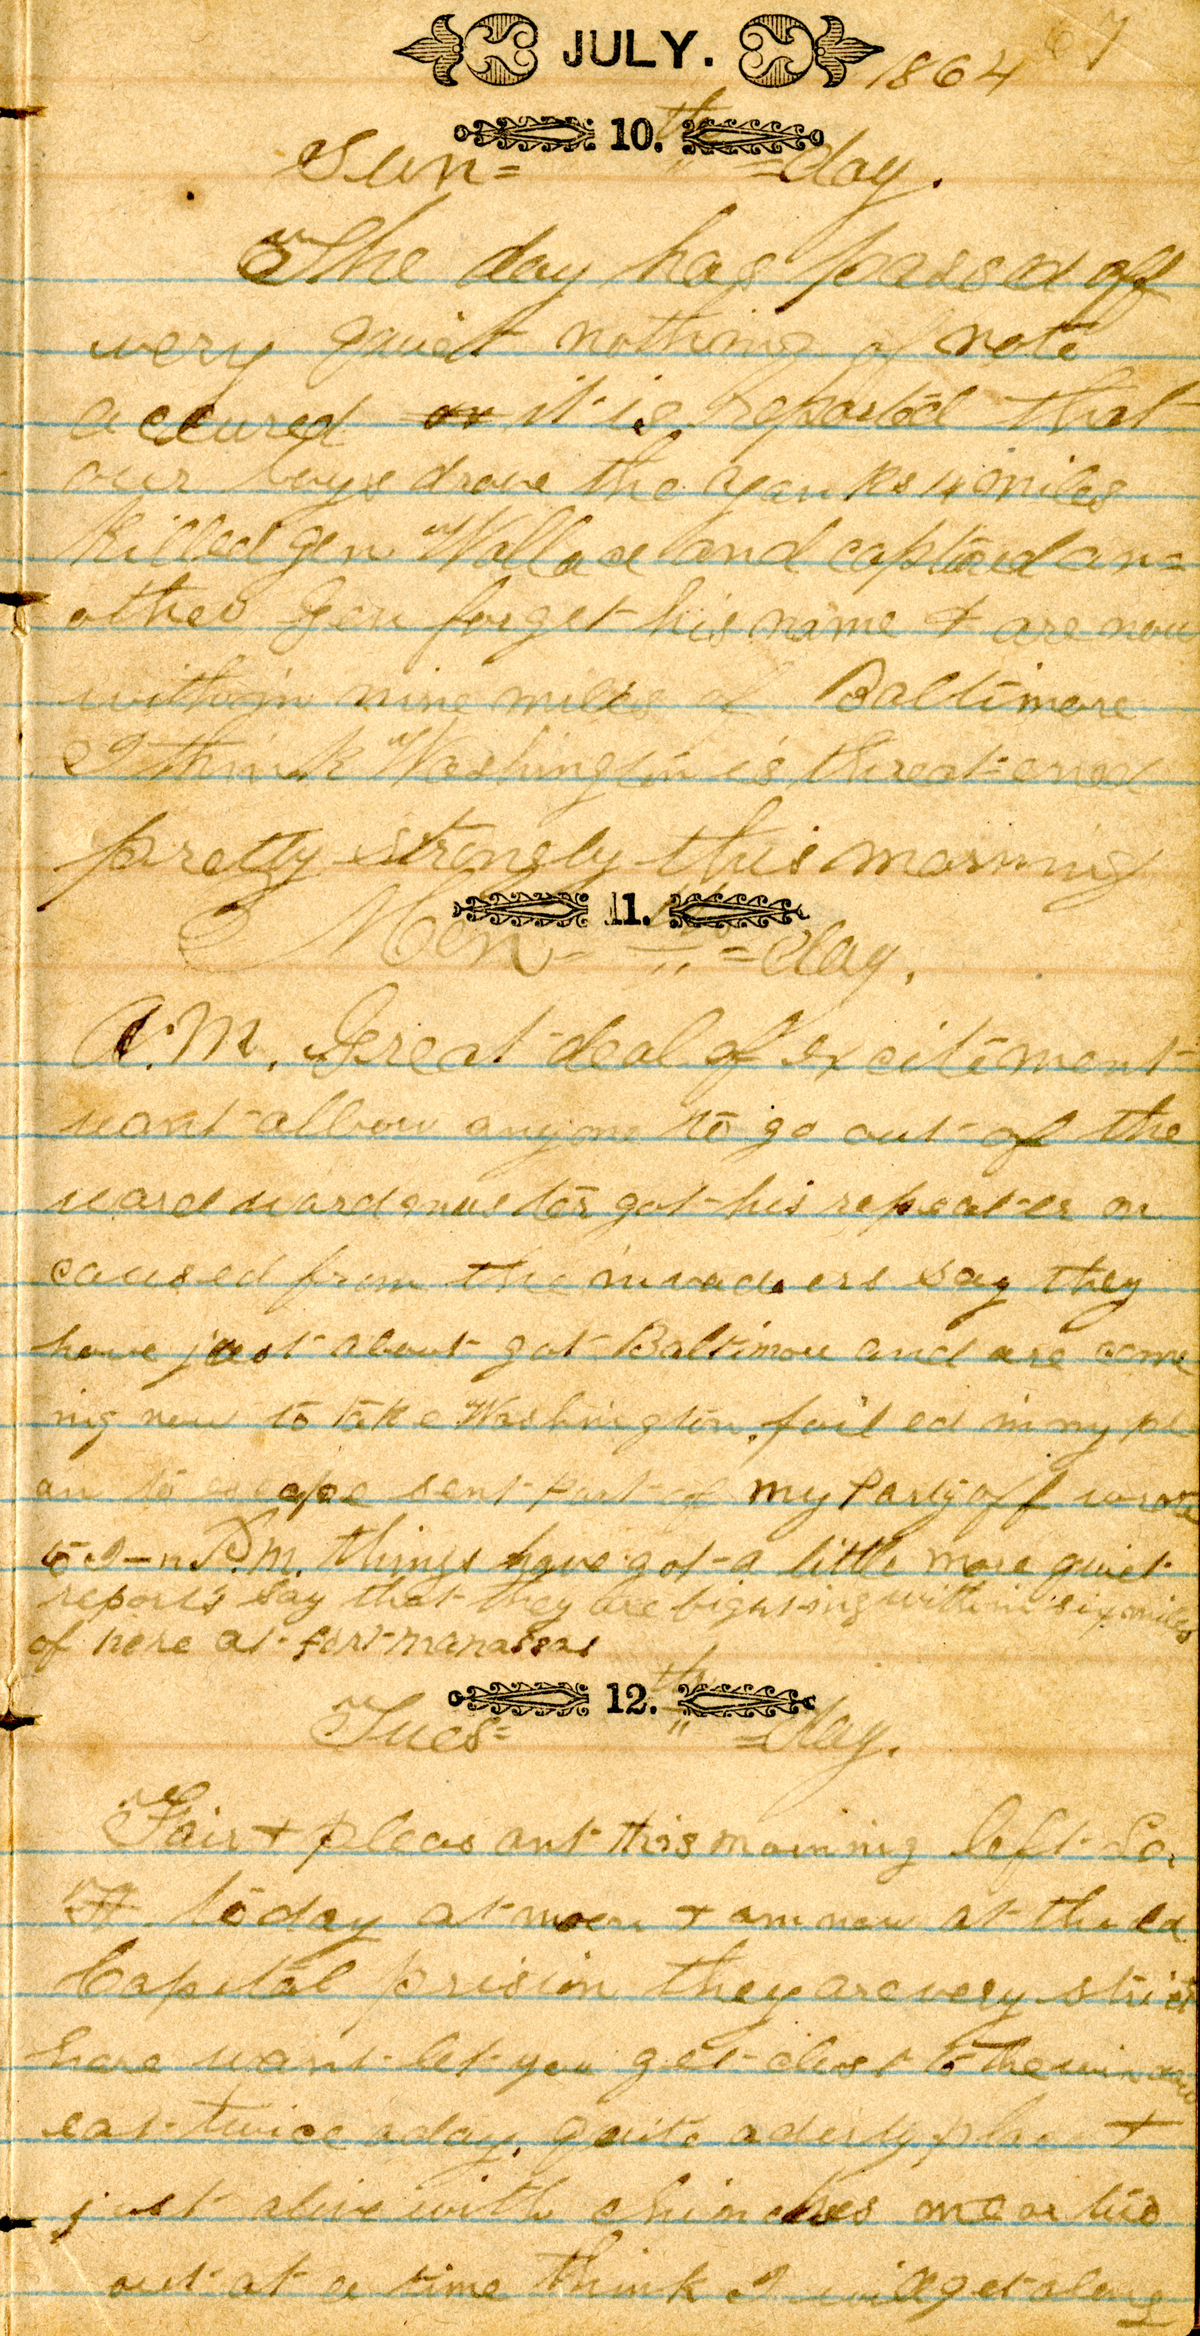 JULY. 1864 67
10. th
Sun= " =day.
The day has passed off
very quiet nothing of note
accured or it is reported that
our boys drove the yanks 4 miles
killed gen Wallace and captured an=
other Gen forget his name & are now
within nine miles of Baltimore
I think Washington is threatened
pretty strongly this morning
11. th
Mon= " =day.
A.M. Great deal of excitement
wont allow anyone to go out of the
ward ward muster got his repeater on
caused from the invaders say they
have just about got Baltimore and are come
ing now to take Washington. foiled in my pl
an to escape sent part of my party off wrote
to P.M. things have got a little more quiet
reports say that they are fighting within six miles
of here at fort manassas
12. th
Tues= " =day.
Fair & pleas ant this morning left
today at noon & am now at the
Capital prision they are very strict
here wont let you get clost to the
eat twice a day. quite a dirty place &
just alive with chinches one or two
out at a time think I will get along